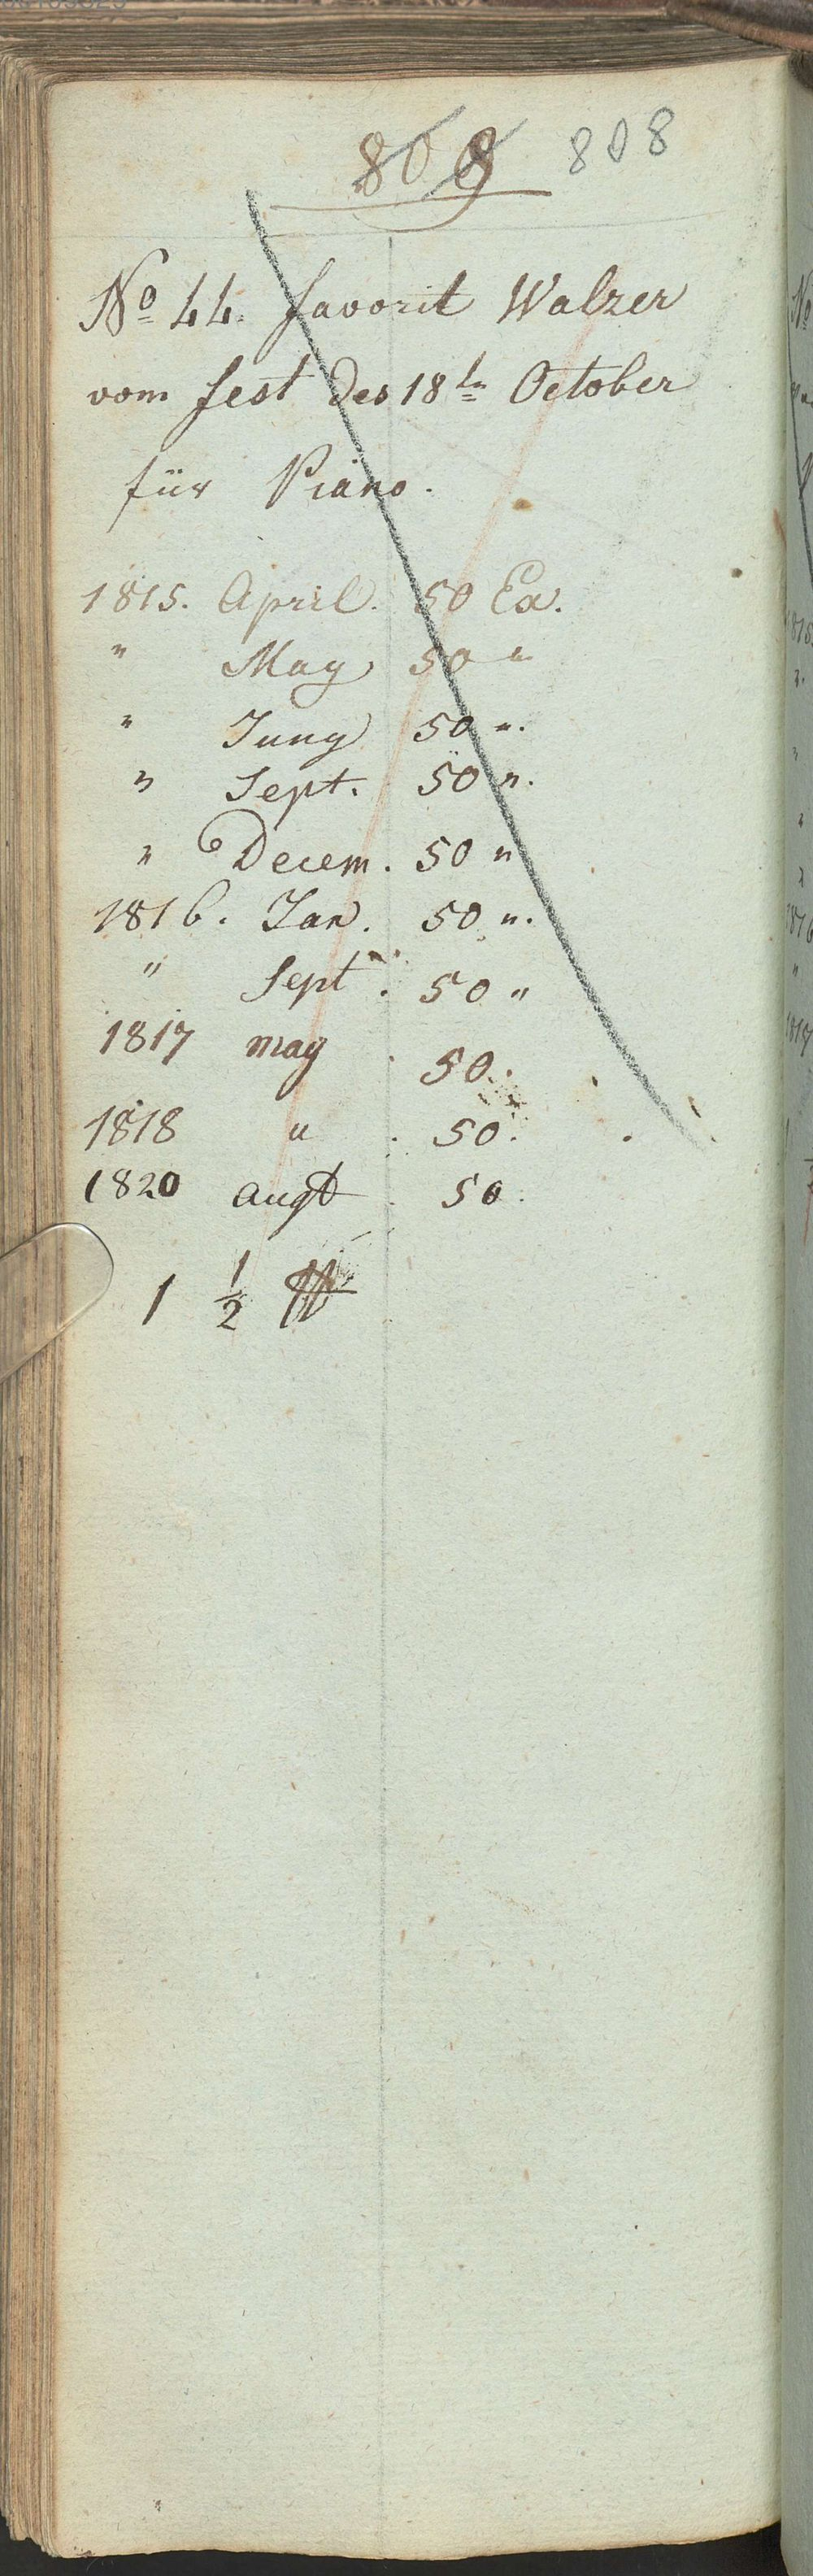 809 808
No 44. Favorit Walzer
vom Fest des 18tn October
für Piano.
1815. April. 50 Ex.
" May 50 "
" Juny 50 ".
" Sept. 50 ".
" Decem. 50 "
1816. Jan. 50 ".
" Sept. 50 "
1817 may 50.
1818 " 50.
1820 augt 50.
1 1/2